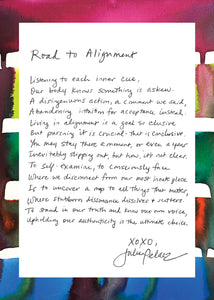 Road to Alignment
Listening to each inner cue,
Our body knows something is askew.
A disingenuous action, a comment we said,
Abandoning intuition for acceptance instead.
Living in alignment is a goal so elusive
But pursuing it is crucial - that is conclusive.
You may stay there a moment, or even a year
Inevitably slipping out, but how, it's not clear.
To self-examine, to consciously face
Where we disconnect from our most honest place
Is to uncover a map to all things that matter,
Where stubborn dissonance dissolves & scatters.
To stand in our truth and hone our own voice,
Upholding our authenticity is the ultimate choice.
XOXO,